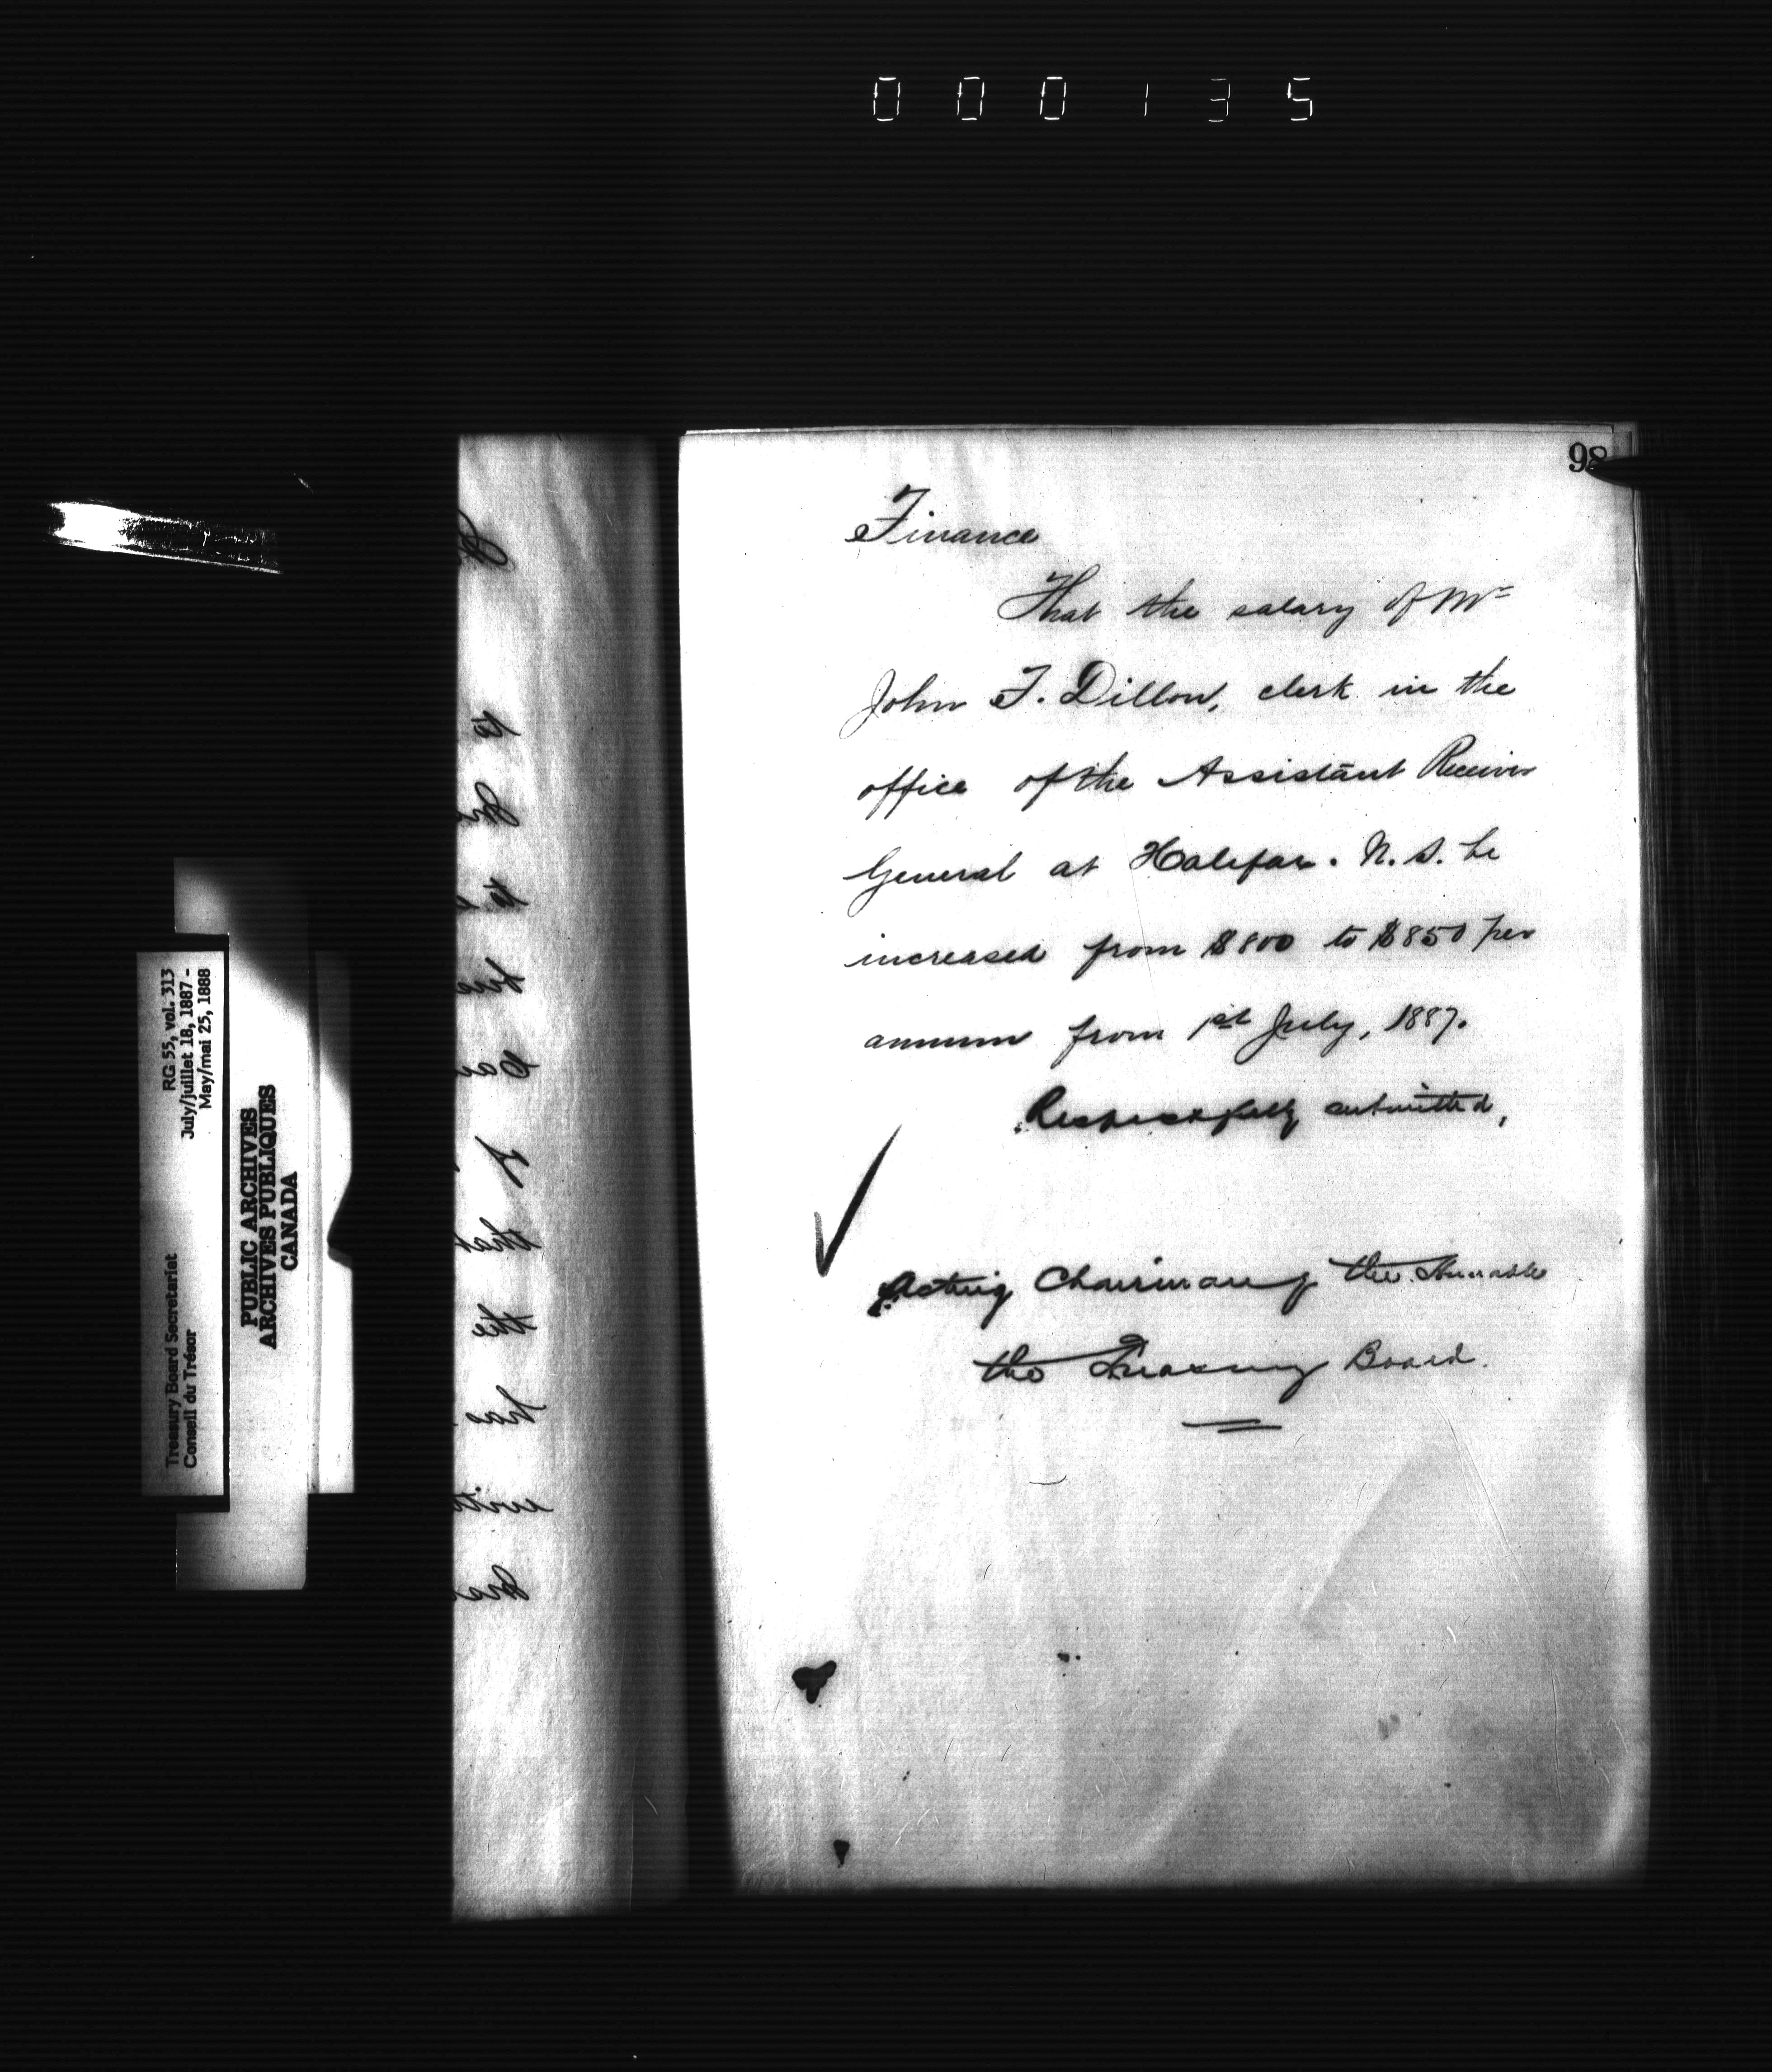 000135
98
Finance
That the salary of Mr
John F. Dillon, clerk in the
office of the Assistant Receiver
General at Halifax. N.S. be
increased from $800 to $850 per
annum from 1st July, 1887.
Respectfully submitted,
Acting Chairman of the Honorable
the Treasury Board.
RG 55, vol. 313
July/juillet 18, 1887 -
May/mai 25, 1888
Treasury Board Secretariat
Conseil du Trésor
PUBLIC ARCHIVES
ARCHIVES PUBLIQUES
CANADA